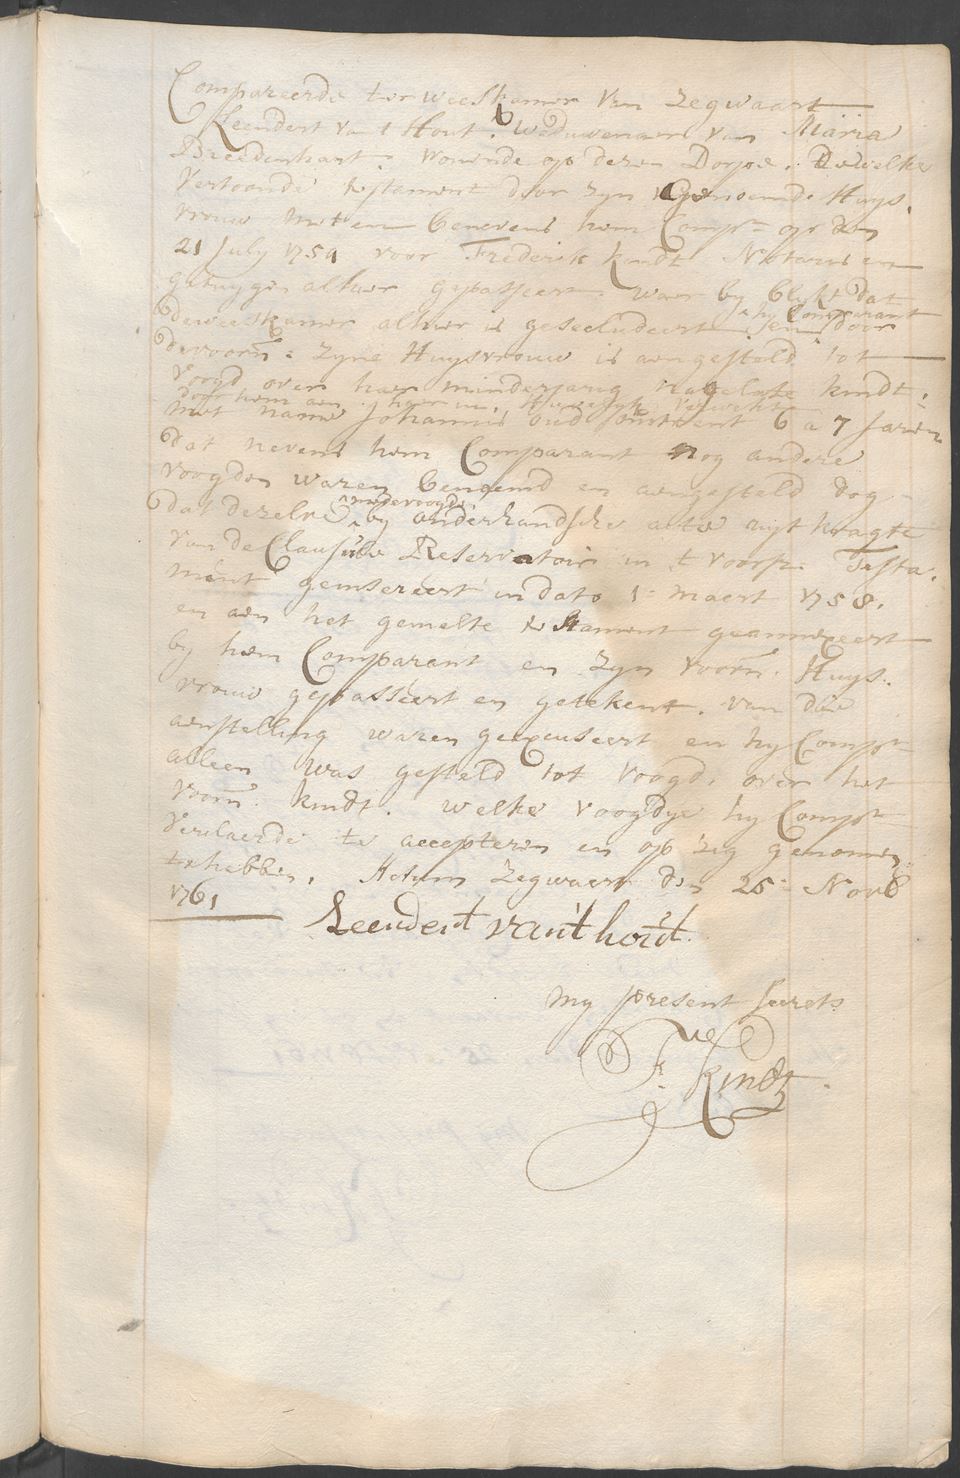 Compareerde ter weeskamer van Zegwaart
Leendert van t Hout. Weduwenaer van Maria
Breedenhart. wonende op dezen Dorpe. Dewelke
vertoonde testament door zyn genoemde Huys.
vrouw met en benevens hem Compt op den
21 July 1754 voor Frederik Kindt Notaris en
getuygen alhier gepasseert. waer by blykt dat
deweeskamer alhier is gesecludeert en hy Comparant door
devoorn. zyne Huysvrouw is aengesteld tot
voogd over haer minderjarig nagelate kindt.
door hem aen haer in Huwelyk verwekt
met name Johannis oud omtrent 6 a 7 Jaren
dat nevens hem Comparant nog andere
voogden waren benoemd en aengesteld dog
dat dezelve medevoogde by onderhandsche acte uyt kragte
van de Clausule Reservatoir in t voorsz. Testa.
ment geinsereert in dato 1. maert 1758.
en aen het gemelte testament geannexeert
by hem Comparant en zyn voorn. Huys.
vrouw gepasseert en getekent. van die
aenstelling waren geexcuseert en hy Compt
alleen was gesteld tot voogd. over het
voorn. kindt. welke voogdye hy Compt
verclaerde te accepteren en op zig genomen
te hebben. Actum Zegwaert den 25. Novb
1761
Leendert van't hout.
My present Secrets.
Fk Kindt.